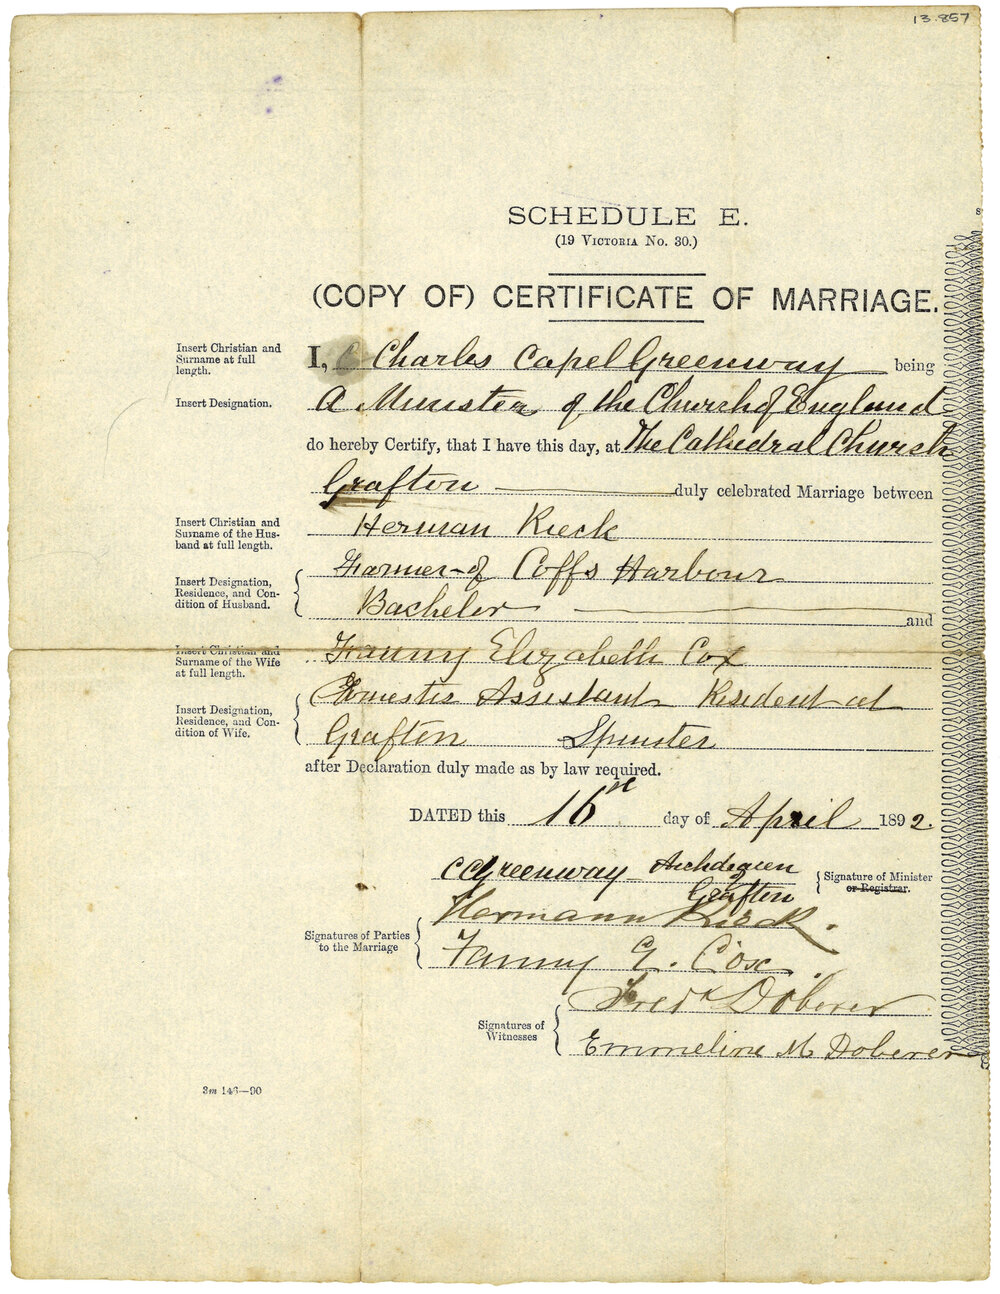 13.857
SCHEDULE E.
(19 VICTORIA No. 30.)
(COPY OF) CERTIFICATE OF MARRIAGE.
Insert Christian and
Surname at full
length.
I, C Charles Capel Greenway being
Insert Designation.
A Minister of the Church of England
do hereby Certify, that I have this day, at The Cathedral Church
Grafton duly celebrated Marriage between
Insert Christian and
Surname of the Hus-
band at full length.
Herman Rieck
Insert Designation,
Residence, and Con-
dition of Husband.
Farmer of Coffs Harbour
Bachelor and
Insert Christian and
Surname of the Wife
at full length.
Fanny Elizabeth Cox
Insert Designation,
Residence, and Con-
dition of Wife.
Domestic Assistant Resident at
Grafton Spinster
after Declaration duly made as by law required.
DATED this 16th day of April 1892.
CCGreenway Archdeacon
Grafton
Signature of Minister
or Registrar.
Signatures of Parties
to the Marriage
Hermann Rieck.
Fanny E. Cox
Signatures of
Witnesses
Fredk Doberer
Emmeline M Doberer
3m 146—90